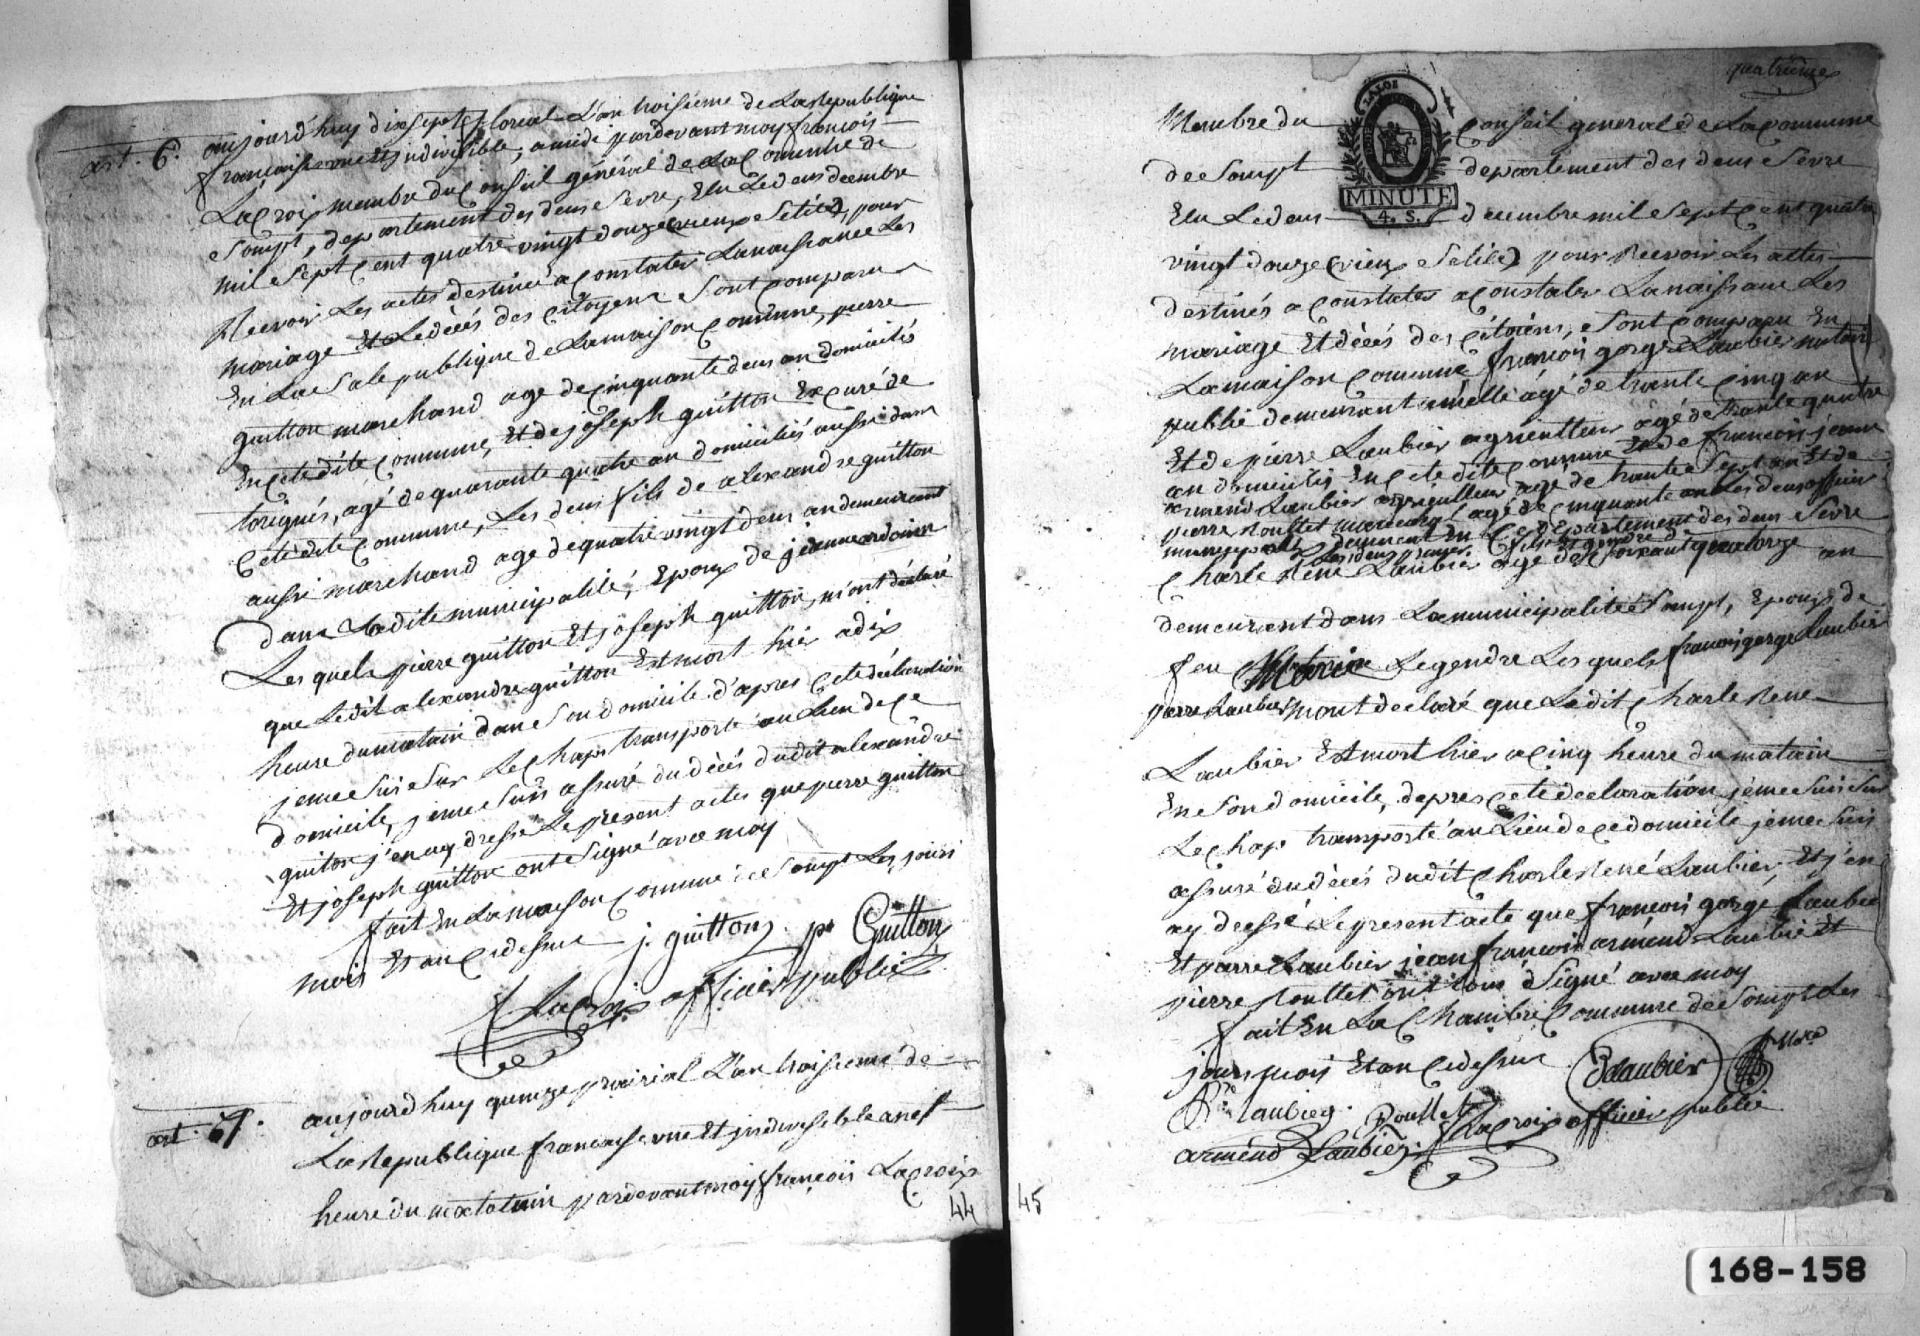 art. 6. aujourd'huy dixsept floreal L'an troisieme de La Republique
francaise une Et indivisible, a midi pardevant moy francois
Lacroix membre du Conseil général de La Commune de
Sompt, departement des deux Sevre, Elu Le deux decembre
mil Sept Cent quatre vingt douze (vieux Stile) pour
Recevoir Les actes destiné a Constater La naissance Les
mariage Et Le décés des Citoyens Sont Comparu
En La Sale publique de La maison Commune, pierre
guitton marchand age de Cinquante deux an domicilié
En Cete dite Commune, Et de joseph guitton Ex curé de
Torigné, agé de quarante quatre an domicilié aussi dans
Cete dite Commune, Les deux fils de alexandre guitton
aussi marchand age de quatre vingt deux an demeurant
dans La dite municipalité, Epoux de jeanne
Les quels pierre guitton Et joseph guitton, m'ont déclaré
que Ledit alexandre guitton Est mort hier a dix
heure du matain dans Son domicile d'apres Cete déclaration
jeme Suis Sur Le Chap transporté au Lieu de Ce
domicile, jeme Suis assuré du décés dudit alexandre
guiton j'en ay dressé Le present actes que pierre guitton
Et joseph guitton ont Signé avec moy
fait En La maison Commune de Sompt Les jours
mois Et an Cidessus j. guitton pre Guitton
f Lacroix officier publié
art. 7. aujourd huy quinze prairial L'an troisieme de
La Republique francaise une Et indivisible a
heure du matain pardevant moy francois Lacroix
44
45
quatrieme
Membre du Conseil general de La Commune
LA LOI
de Sompt departement des deux Sevre
MINUTE
4. S.
Elu Le deux decembre mil Sept Cent quatre
vingt douze (vieux Stile) pour Recevoir Les actes
destinés a Constater a Constater La naissance Les
mariage Et décés des Citoiens, Sont Comparu En
La maison Commune francois gorge Laubier notaire
publié demeurant a mélle âgé de trante Cinq an
Et de pierre Laubier agrieulteur agé de trante quatre
an domicilié En Cete dite Commune Et de francois jean
armend Laubier agrieulteur age de trante Sept an Et de
pierre Roullet agé de Cinquante an Les deux
demeurent En Ce departement des deux Sevre
Les deux
Charle René Laubier age de Soixante quatorze an
demeurent dans La municipalité Sompt, Epoux de
feu Marie Legendre Les quels francois gorge Laubier
pierre Laubier m'ont declaré que Ledit Charle René
Laubier Est mort hier a Cinq heure du matain
En Son domicile, depres Cete declaration, jeme Suis Sur
Le Chap transporté au Lieu de Ce domicile jeme Suis
assuré du décés dudit Charle René Laubier, Et j'en
ay dressé Le present acte que francois gorgé Laubier
Et pierre Laubier jean francois armend Laubié Et
pierre Roullet ont tous Signé avec moy
fait En La Chambre Commune de Sompt Les
jours mois Et an Cidessus Laubier
Laubier. Roullet f Lacroix officier publié
armend Laubier
168-158